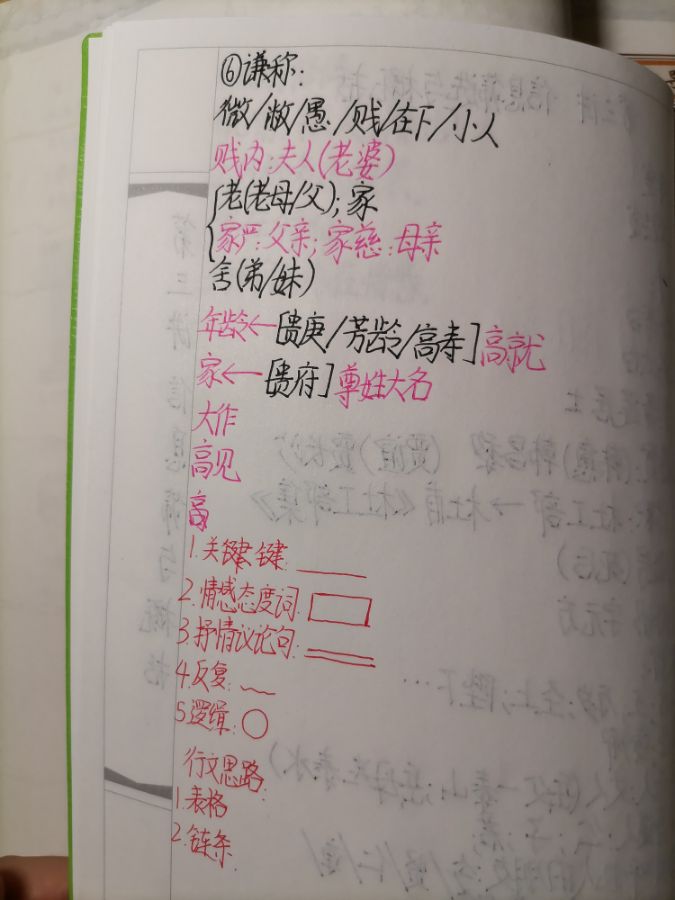 ⑥谦称:
微/敝/愚/贱/在下/小人
贱内:夫人(老婆)
老(老母/父);家
家严:父亲;家慈:母亲
舍(弟/妹)
年龄←[贵庚/芳龄/高寿]高就
家←[贵府]尊姓大名
大作
高见
高
1.关键键:
2.情感态度词:
3.抒情议论句:
4.反复:
5.逻辑:
行文思路:
1.表格
2.链条